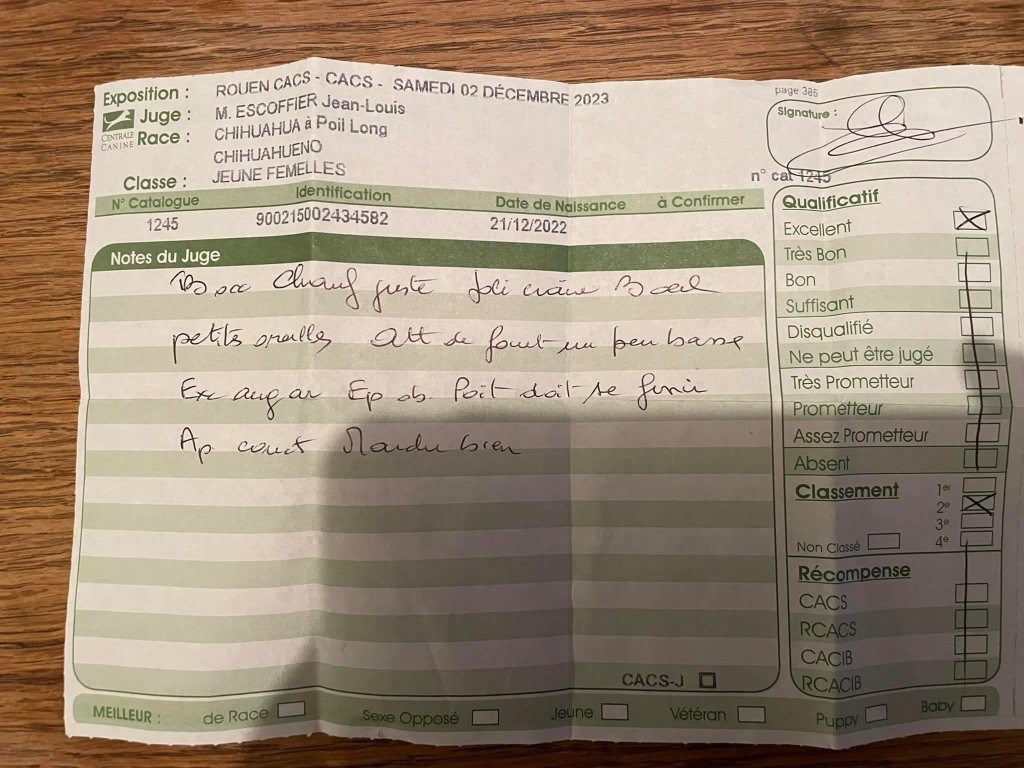 Exposition : ROUEN CACS - CACS - SAMEDI 02 DÉCEMBRE 2023
Juge : M. ESCOFFIER Jean-Louis
CENTRALE CANINE
Race : CHIHUAHUA à Poil Long
CHIHUAHUENO
Classe : JEUNE FEMELLES
N° Catalogue Identification Date de Naissance à Confirmer
1245 900215002434582 21/12/2022
Notes du Juge
juste Joli crâne B oeil
petites Att de fouet un peu basse
Exc Poil doit se fournir
court bien
CACS-J
MEILLEUR : de Race Sexe Opposé Jeune Vétéran Puppy Baby
page 385
Signature :
n° cat 1245
Qualificatif
Excellent
Très Bon
Bon
Suffisant
Disqualifié
Ne peut être jugé
Très Prometteur
Prometteur
Assez Prometteur
Absent
Classement
1er
2e
3e
Non Classé 4e
Récompense
CACS
RCACS
CACIB
RCACIB